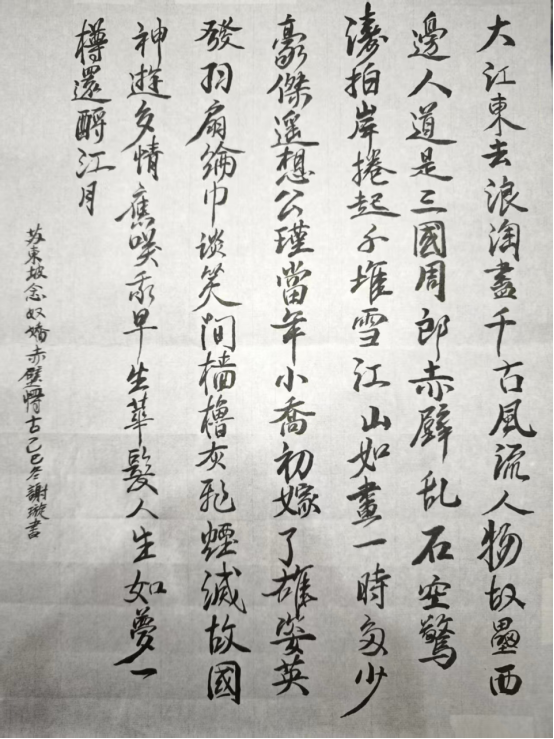 大江東去浪淘盡千古風流人物故壘西
邊人道是三國周郎赤壁乱石空驚
濤拍岸捲起千堆雪江山如畫一時多少
豪傑遥想公瑾當年小喬初嫁了雄姿英
發羽扇綸巾談笑間檣櫓灰飛煙滅故國
神遊多情應笑我早生華髮人生如夢一
樽還酹江月
苏東坡念奴嬌赤壁懷古乙巳冬謝璇書